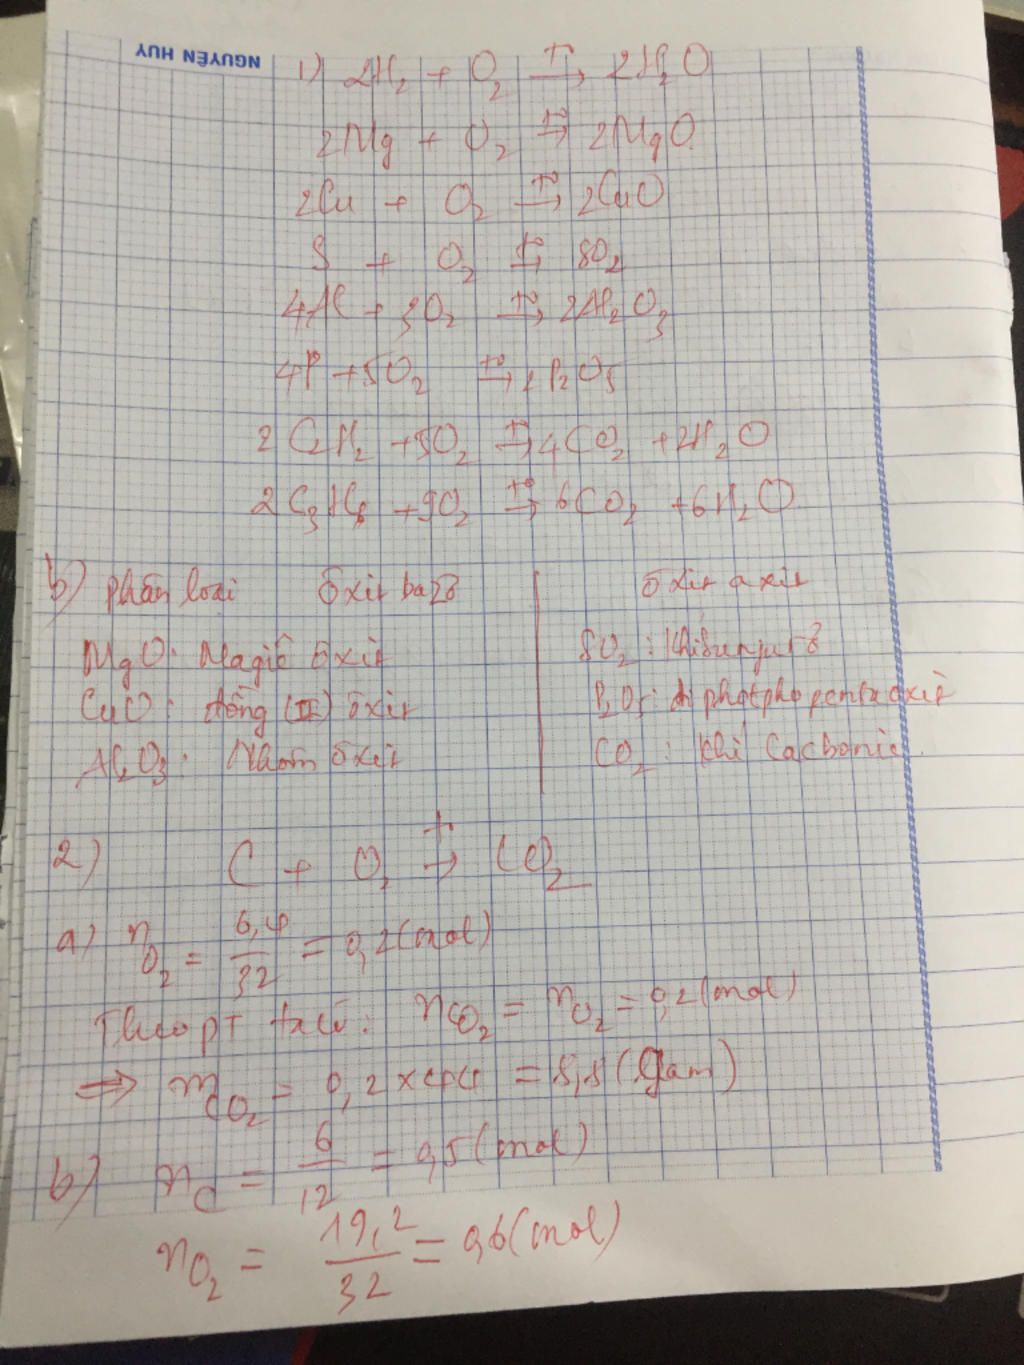 NGUYÊN HUY
1) 2H₂ + O₂ →(t°) 2H₂O
2Mg + O₂ →(t°) 2MgO
2Cu + O₂ →(t°) 2CuO
S + O₂ →(t°) SO₂
4Al + 3O₂ →(t°) 2Al₂O₃
4P + 5O₂ →(t°) 2P₂O₅
2C₂H₂ + 5O₂ →(t°) 4CO₂ + 2H₂O
2C₃H₆ + 9O₂ →(t°) 6CO₂ + 6H₂O
b) phân loại ôxit bazơ ôxit axit
MgO: Magiê ôxit SO₂: Khí
CuO: đồng (II) ôxit P₂O₅: đi phôtpho penta oxit
Al₂O₃: Nhôm ôxit CO₂: Khí Cacbonic.
2) C + O₂ →(t°) CO₂
a) n O₂ = 6,4/32 = 0,2 (mol)
Theo PT ta có: nCO₂ = nO₂ = 0,2 (mol)
⇒ mCO₂ = 0,2 x 44 = 8,8 (gam)
b) nC = 6/12 = 0,5 (mol)
nO₂ = 19,2/32 = 0,6 (mol)